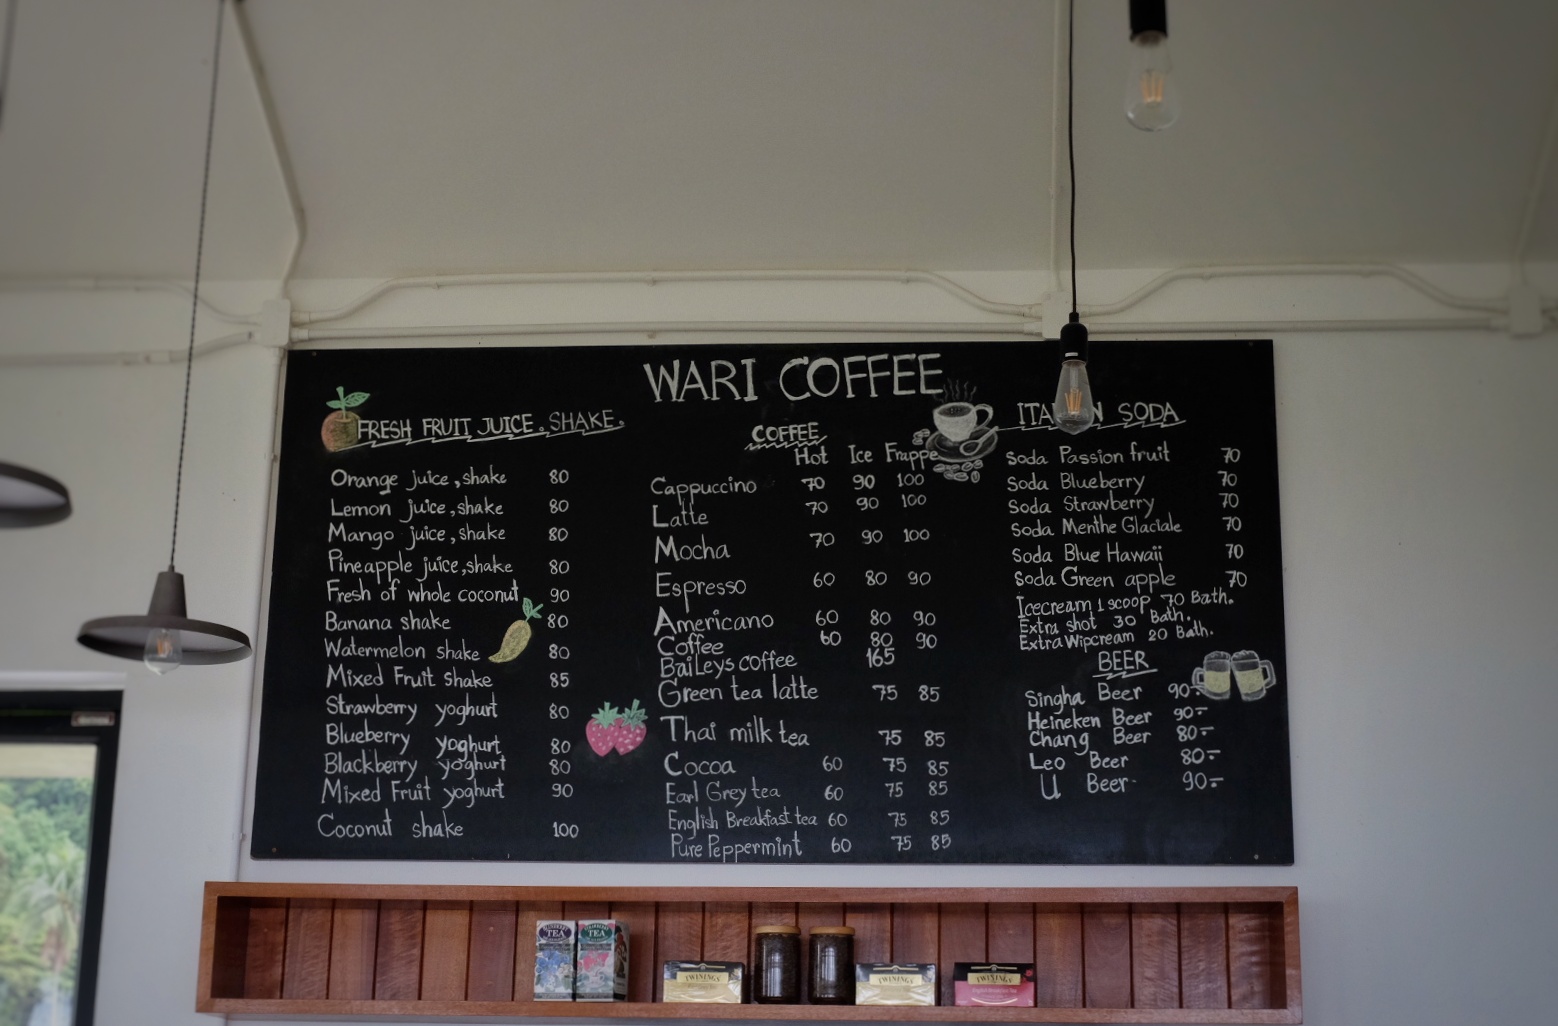 WARI COFFEE
FRESH FRUIT JUICE. SHAKE.
Orange juice, shake 80
Lemon juice, shake 80
Mango juice, shake 80
Pineapple juice, shake 80
Fresh of whole coconut 90
Banana shake 80
Watermelon shake 80
Mixed Fruit shake 85
Strawberry yoghurt 80
Blueberry yoghurt 80
Blackberry yoghurt 80
Mixed Fruit yoghurt 90
Coconut shake 100
COFFEE
Hot Ice Frappe
Cappuccino 70 90 100
Latte 70 90 100
Mocha 70 90 100
Espresso 60 80 90
Americano 60 80 90
Coffee 60 80 90
BaiLeys coffee 165
Green tea latte 75 85
Thai milk tea 75 85
Cocoa 60 75 85
Earl Grey tea 60 75 85
English Breakfast tea 60 75 85
Pure Peppermint 60 75 85
SODA
Soda Passion fruit 70
Soda Blueberry 70
Soda Strawberry 70
Soda Menthe Glaciale 70
Soda Blue Hawaii 70
Soda Green apple 70
Icecream 1 scoop 70 Bath.
Extra shot 30 Bath.
Extra Wipcream 20 Bath.
BEER
Singha Beer 90.-
Heineken Beer 90.-
Chang Beer 80.-
Leo Beer 80.-
U Beer 90.-
TEA
TEA
TWININGS
TWININGS
TWININGS